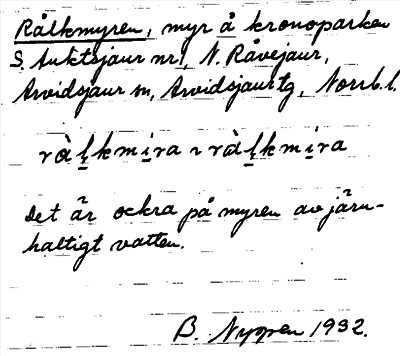 Rålkmyren, myr å kronoparken
S. Auktsjaur nr 1, N. Råvejaur,
Arvidsjaur sn, Arvidsjaur tg, Norrb. l.
rà l̲ k m i̲ r a ɿ r à l̲ k m i̲ r a
Det är ockra på myren av järn-
haltigt vatten.
B. Nygren 1932.